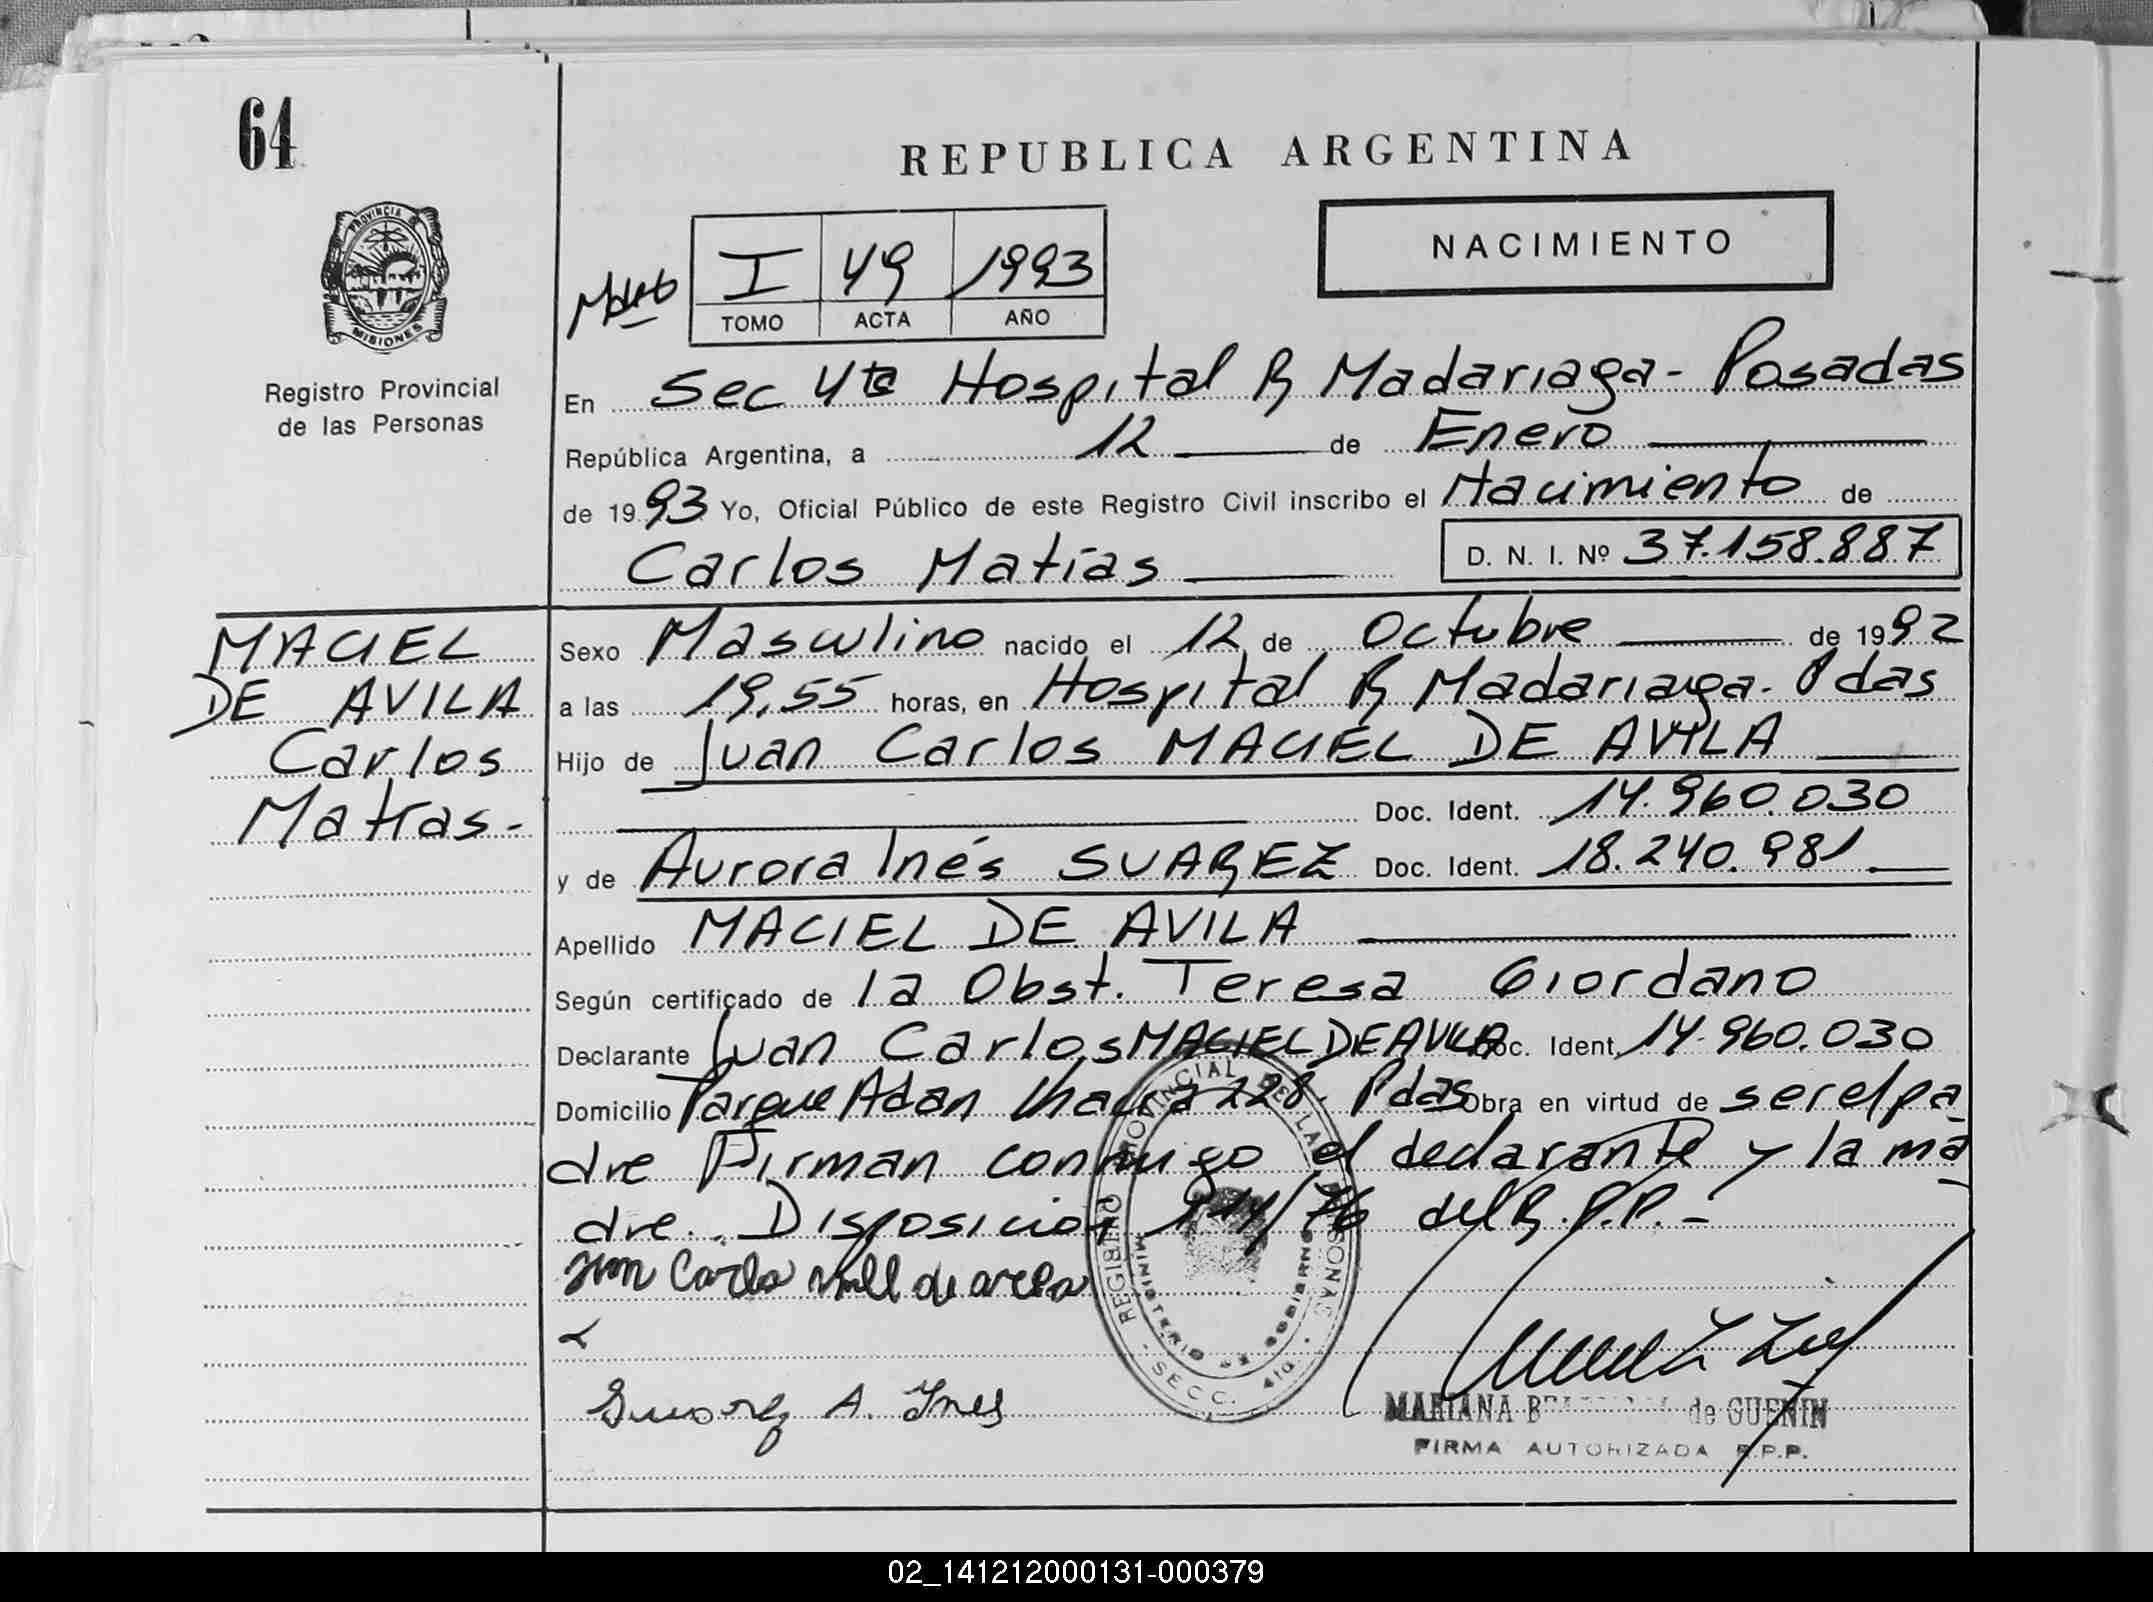 64
REPUBLICA ARGENTINA
PROVINCIA
MISIONES
NACIMIENTO
I 49 1993
TOMO ACTA AÑO
Registro Provincial
de las Personas
En Sec 4ta Hospital R Madariaga - Posadas
República Argentina, a 12 de Enero
de 1993 Yo, Oficial Público de este Registro Civil inscribo el Nacimiento de
Carlos Matías D. N. I. Nº 37.158.887
MACIEL
DE AVILA
Carlos
Matías.-
Sexo Masculino nacido el 12 de Octubre de 1992
a las 19,55 horas, en Hospital R Madariaga. Pdas
Hijo de Juan Carlos MACIEL DE AVILA
Doc. Ident. 14.960.030
y de Aurora Inés SUAREZ Doc. Ident. 18.240.981
Apellido MACIEL DE AVILA
Según certificado de la Obst. Teresa Giordano
Declarante Juan Carlos MACIEL DE AVILA Doc. Ident. 14.960.030
Domicilio Parque Adan Chacra 228. Pdas Obra en virtud de ser el pa
dre Firman conmigo el declarante y la ma
dre. Disposición 914/76 del R.P.P.-
REGISTRO PROVINCIAL DE LAS PERSONAS
MINISTERIO DE GOBIERNO
SECC. 4ta.
Suarez A. Ines
MARIANA de GUENIN
FIRMA AUTORIZADA R.P.P.
02_141212000131-000379